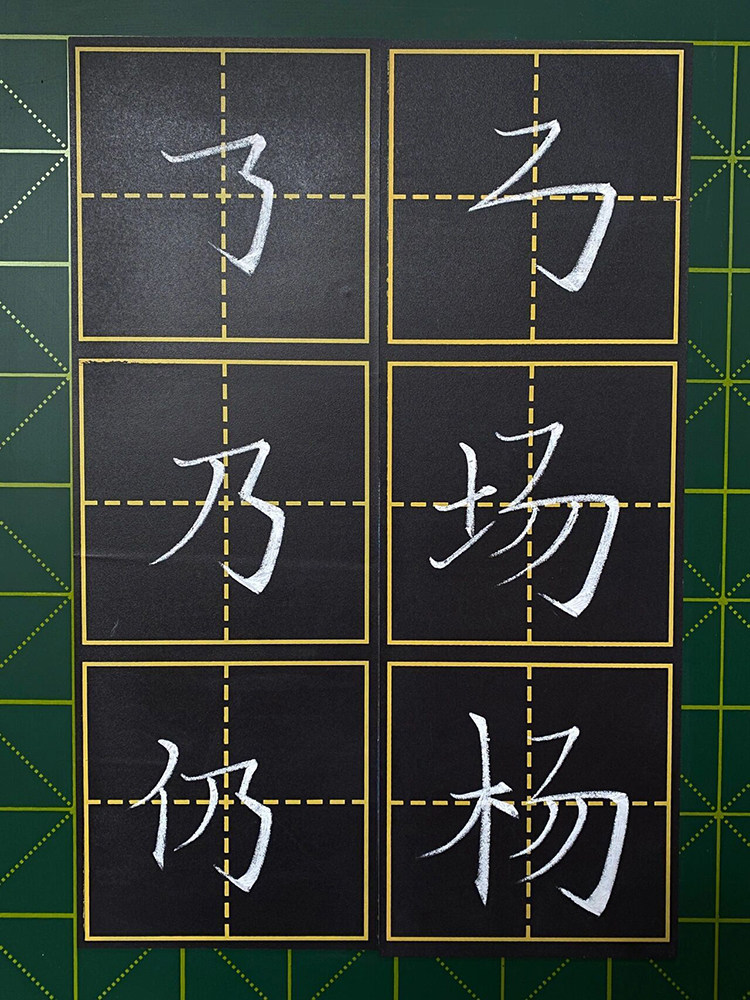 乃 场
仍 杨